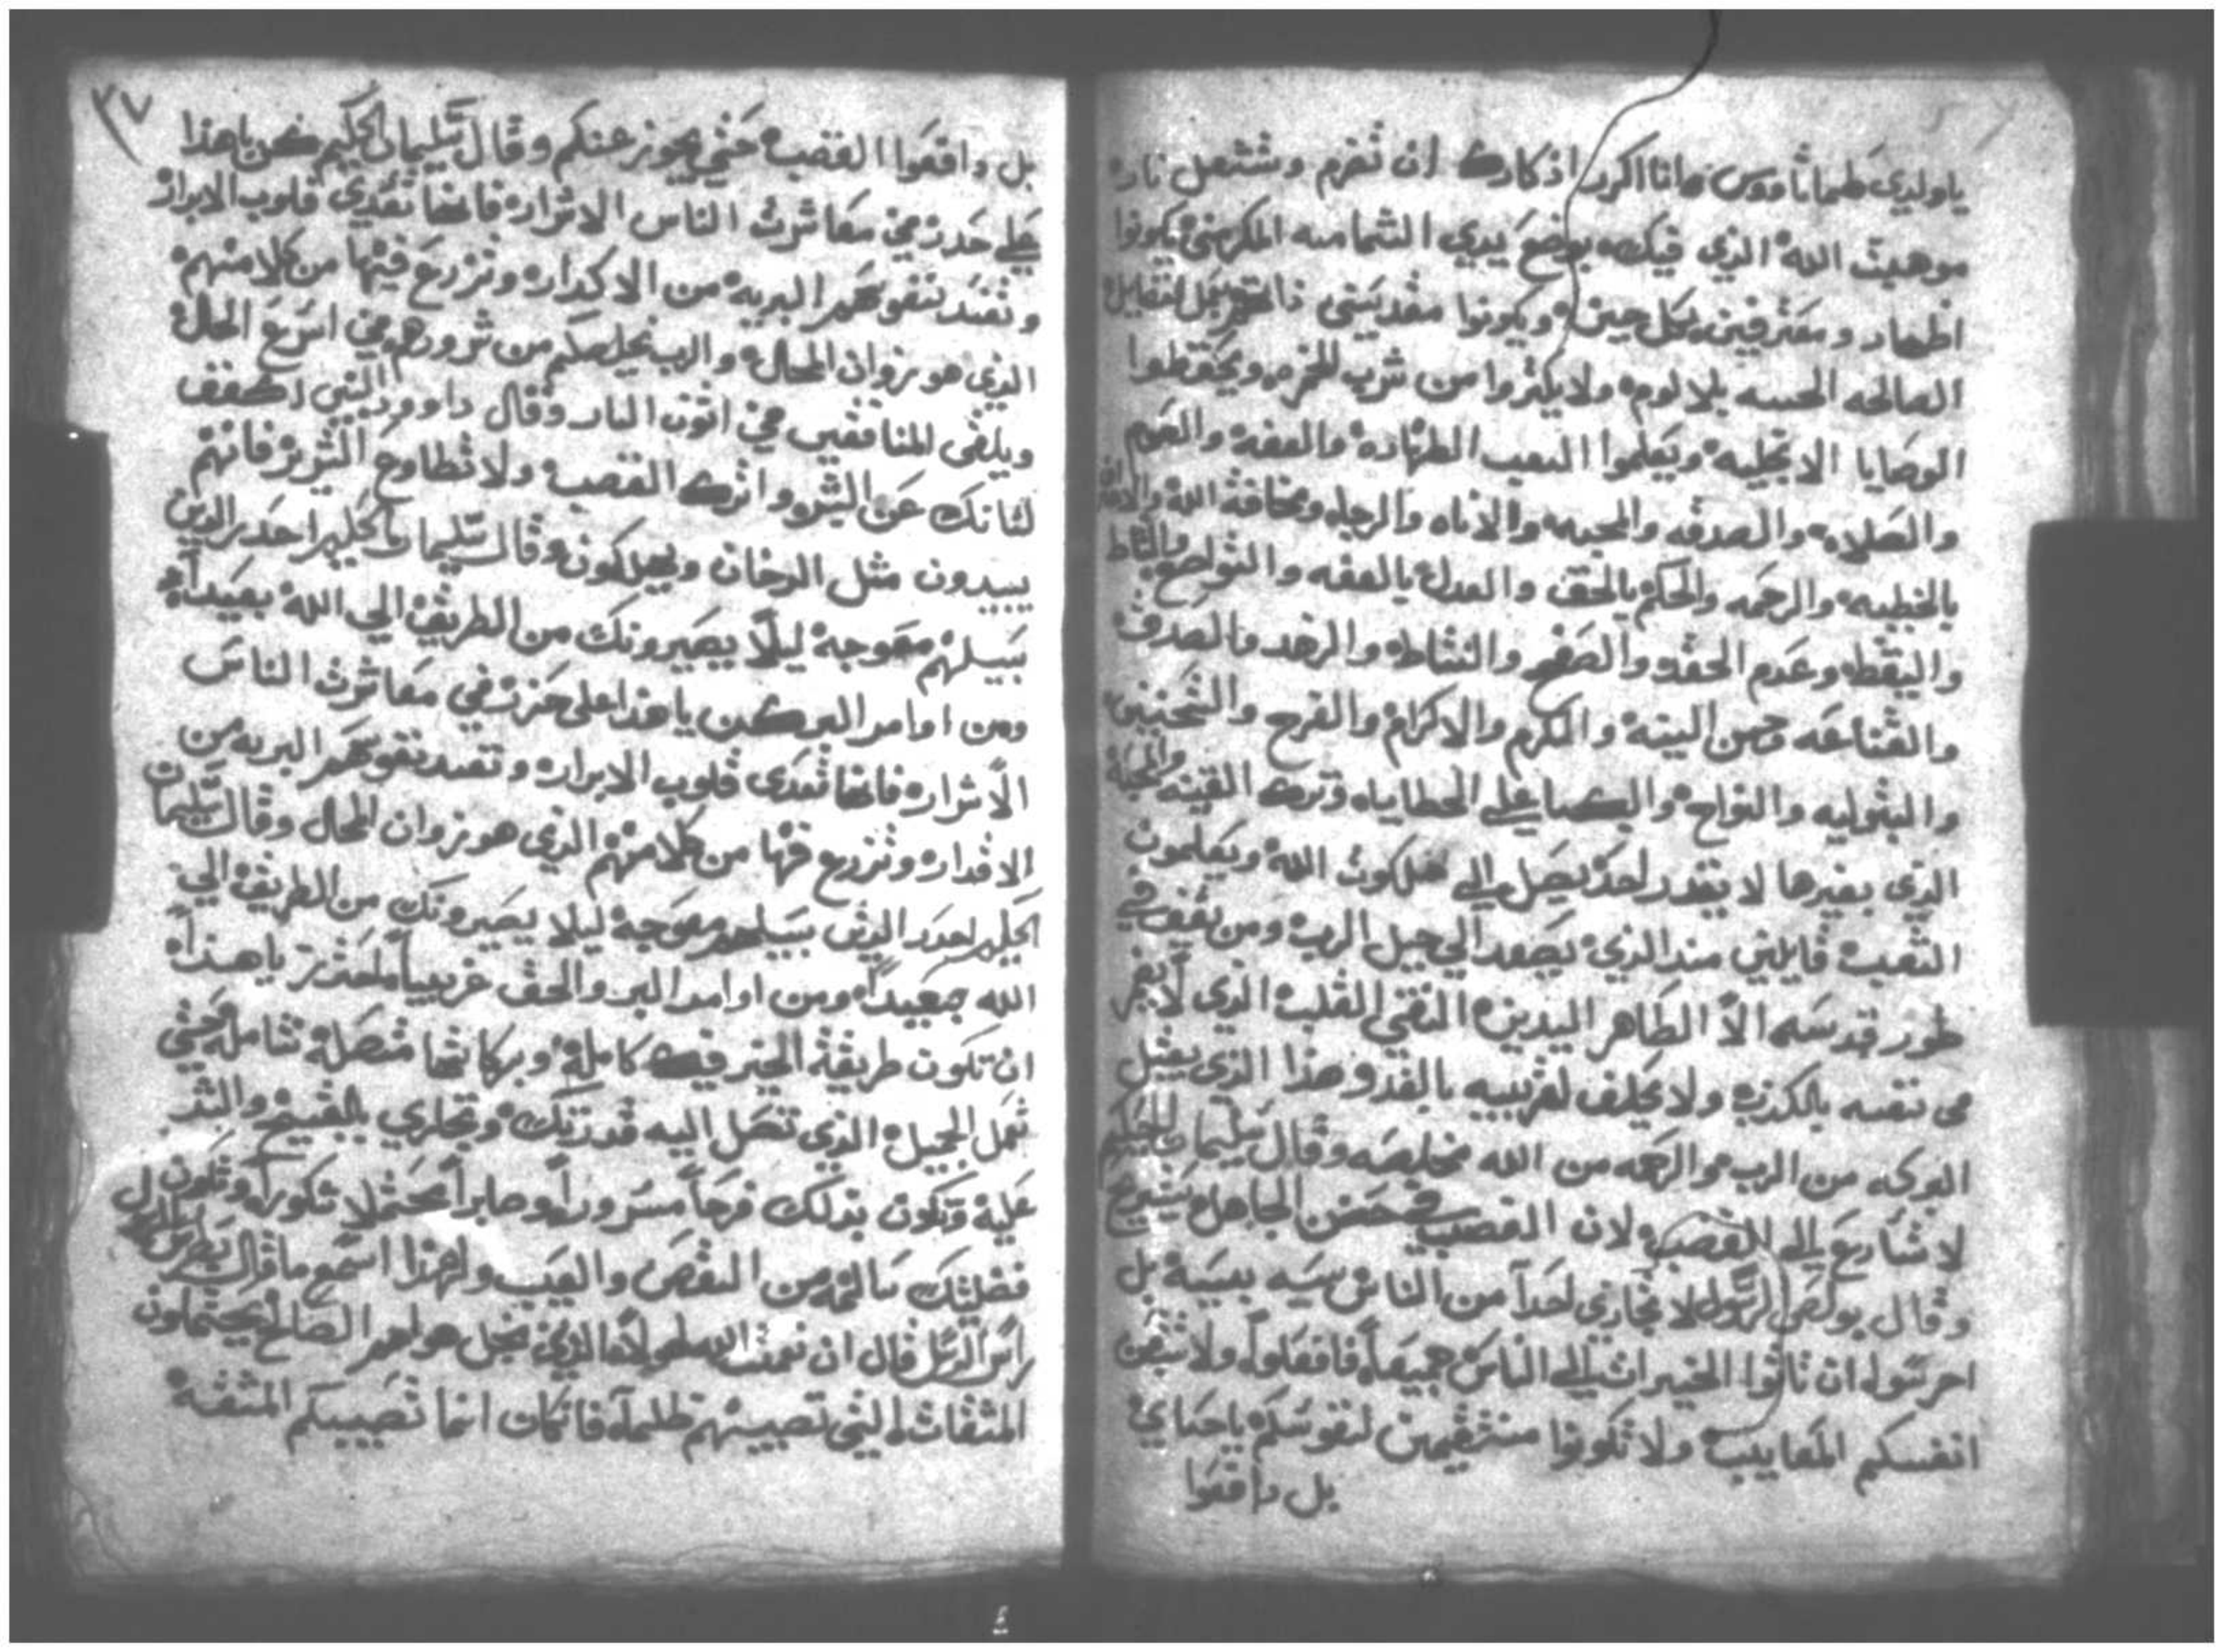 ياولدي طيماثاووس وانا اكرر اذكارك ان تضرم وتشتعل نار
موهبت الله الذي فيك بوضع يدي الشمامسه المكرمين يكونوا
اطهار ومعترفين بكل حين ويكونوا مقدسين
الصالحه الحسنه بلا لوم ولا يكتروا من شرب الخمر ويحفظوا
الوصايا الانجليه ويعلموا الشعب الطهاره والعفه والصوم
والصلاه والصدقه والمحبه والاناه والرجا ومخافة الله
بالخطيه والرحمه والحكم بالحق والعدل بالعفه والتواضع
واليقظه وعدم الحقد والصفح والنشاط والزهد والصدق
والقناعه وحسن النية والكرم والاكرام والفرح
والبتوليه والنواح والبكا علي الخطاياه وترك القنيه والمحبة
الذي بغيرها لا يقدر احد يصل الي ملكوت الله ويعلمون
الشعب قايلين منذ الذي يصعد الي جبل الرب ومن يقف في
طور قدسه الا الطاهر اليدين النقي القلب الذي لا
في نفسه بالكذب ولا يحلف لقريبه بالغدر هذا الذي يقبل
البركه من الرب والرحمه من الله مخلصه وقال سليمان الحكيم
لا تسارع الي الغضب لان الغضب في حضن الجاهل يستريح
وقال بولص الرسول لا تجازي احدا من الناس سيه بسيه بل
احرسوا ان تاتوا الخيرات الي الناس جميعا فافعلوا ولا
انفسكم المعايب ولا تكونوا منتقمين لنفوسكم ياحباي
بل دافعوا
٣٧
بل دافعوا الغضب حتي يجوز عنكم وقال سليمان الحكيم كن ياهذا
علي حذر من معاشرت الناس الاشرار فانها تعدي قلوب الابرار
وتفسد نفوسهم البريه من الاكدار وتزرع فيها من كلامهم
الذي هو زوان المحال والرب يخلصكم من شرورهم في اسرع الحال
ويلقي المنافقين في اتون النار وقال داوود النبي اكفف
لسانك عن الشر واترك الغضب ولا تطاوع الشرير فانهم
يبيدون مثل الدخان ويهلكون وقال سليمان الحكيم احذر الذين
سبيلهم معوجة ليلا يصيرونك من الطريق الي الله بعيدا
ومن اوامر البر كن ياهذا علي حذر في معاشرت الناس
الاشرار فانها تعدي قلوب الابرار وتفسد نفوسهم البريه من
الاقدار وتزرع فيها من كلامهم الذي هو زوان المحال وقال سليمان
الحكيم احذر الذين سبيلهم معوجة ليلا يصيرونك من الطريق الي
الله بعيدا ومن اوامر البر والحق غريبا احذر ياهذا
ان تكون طريقة الخير فيك كاملة وبركاتها متصلة شاملة حتي
تعمل الجميل الذي تصل اليه قدرتك وتجازي بالقبيح والشر
عليه وتكون بذلك فرحا مسرورا وصابرا محتملا شكورا وتكون
فضليتك سالمه من النقص والعيب ولهذا اسمع ما قال بطرس الرسول
راس الرسل قال ان نعمت الله لهولاء الذين من اجل هواهم الصالح يحتملون
المشقات التي تصيبهم ظلما فان كان انما تصيبكم المشقة